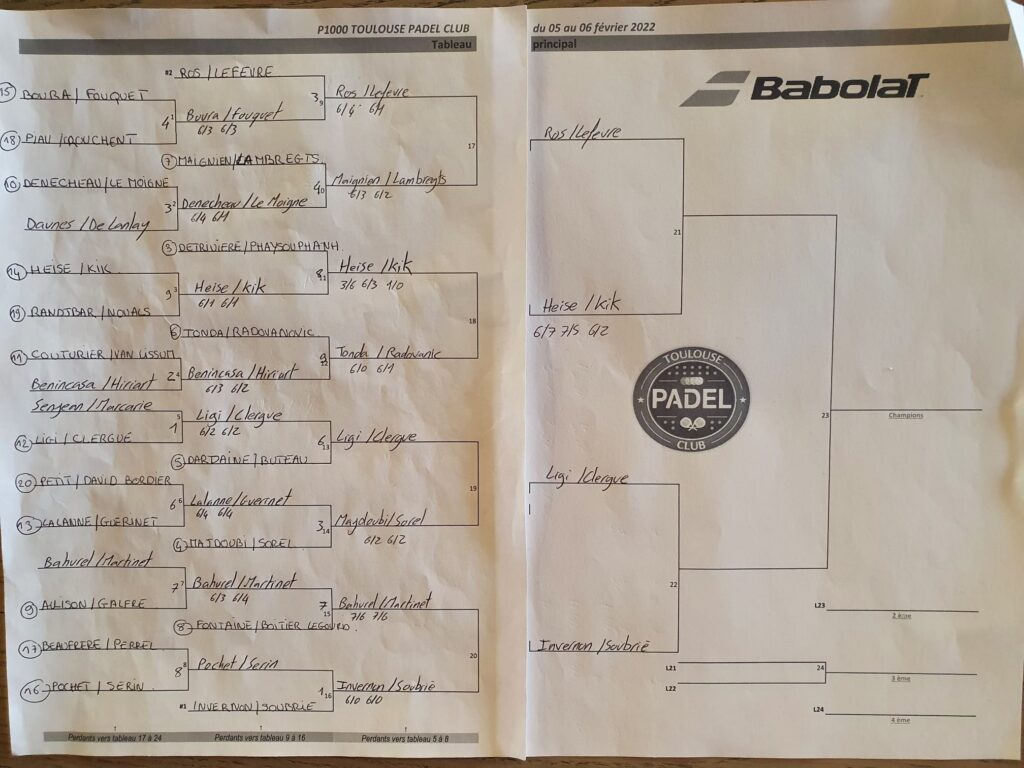 P1000 TOULOUSE PADEL CLUB
du 05 au 06 février 2022
Tableau
principal
#2 ROS / LEFEVRE
15 BOURA / FOUQUET
4 1
Boura / Fouquet
6/3 6/3
18 PIAU / CROUCHENT
3 9
Ros / Lefevre
6/4 6/1
7 MAIGNIEN / LAMBREGTS
10 DENECHEAU / LE MOIGNE
3 2
Denecheau / Le Moigne
6/4 6/1
Daunes / De Lanlay
4 10
Maignien / Lambregts
6/3 6/2
17
3 DETRIVIERE / PHAYSOUPHANH
14 HEISE / KIK
9 3
Heise / Kik
6/1 6/1
19 RANDJBAR / NOVALS
8 11
Heise / Kik
3/6 6/3 1/0
6 TONDA / RADOVANOVIC
11 COUTURIER / VAN LISSUM
2 4
Benincasa / Hiriart
6/3 6/2
Benincasa / Hiriart
9 12
Tonda / Radovanic
6/0 6/1
18
/ Marcarie
1 5
Ligi / Clergue
6/2 6/2
12 LIGI / CLERGUE
5 DARDAINE / RUTEAU
6 13
Ligi / Clergue
20 PETIT / DAVID BORDIER
6 6
Lalanne / Guerinet
6/4 6/4
13 LALANNE / GUERINET
4 MAJDOUBI / SOREL
3 14
Majdoubi / Sorel
6/2 6/2
19
Bahurel / Martinet
7 7
Bahurel / Martinet
6/3 6/4
9 ALLISON / GALFRE
8 FONTAINE / BOITIER LEGOURD
7 15
Bahurel / Martinet
7/6 7/6
17 BEAUFRERE / PERREL
8 8
Pochet / Serin
16 POCHET / SERIN
#1 INVERNON / SOUBRIE
1 16
Invernon / Soubrié
6/0 6/0
20
Perdants vers tableau 17 à 24
Perdants vers tableau 9 à 16
Perdants vers tableau 5 à 8
BABOLAT
Ros / Lefevre
21
Heise / Kik
6/7 7/5 6/2
TOULOUSE
PADEL
CLUB
23
Champions
Ligi / Clergue
22
Invernon / Soubrié
L23
2 ème
L21
L22
24
3 ème
L24
4 ème